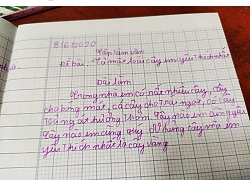 8/6/2020
Tập làm văn
Đề bài: Tả một loại cây em yêu thích nhất
Bài làm
Trong nhà em có rất nhiều cây, cây
cho bóng mát, có cây cho trái ngọt, có cây
hương thơm. Cây nào em cũng yêu
cây nào em cũng quý. Nhưng cây mà em
yêu thích nhất là cây